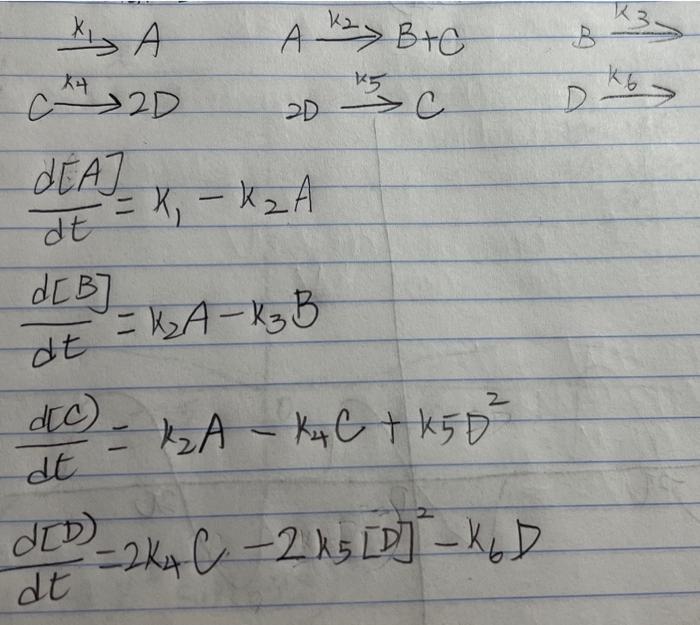 K₁⟶ A    A K₂⟶ B+C    B K₃⟶
C K₄⟶ 2D    2D K₅⟶ C    D K₆⟶
d[A]/dt = K₁ − K₂A
d[B]/dt = K₂A − K₃B
d[C)/dt = K₂A − K₄C + K5D²
d[D)/dt = 2K₄C − 2K5[D]² − K₆D